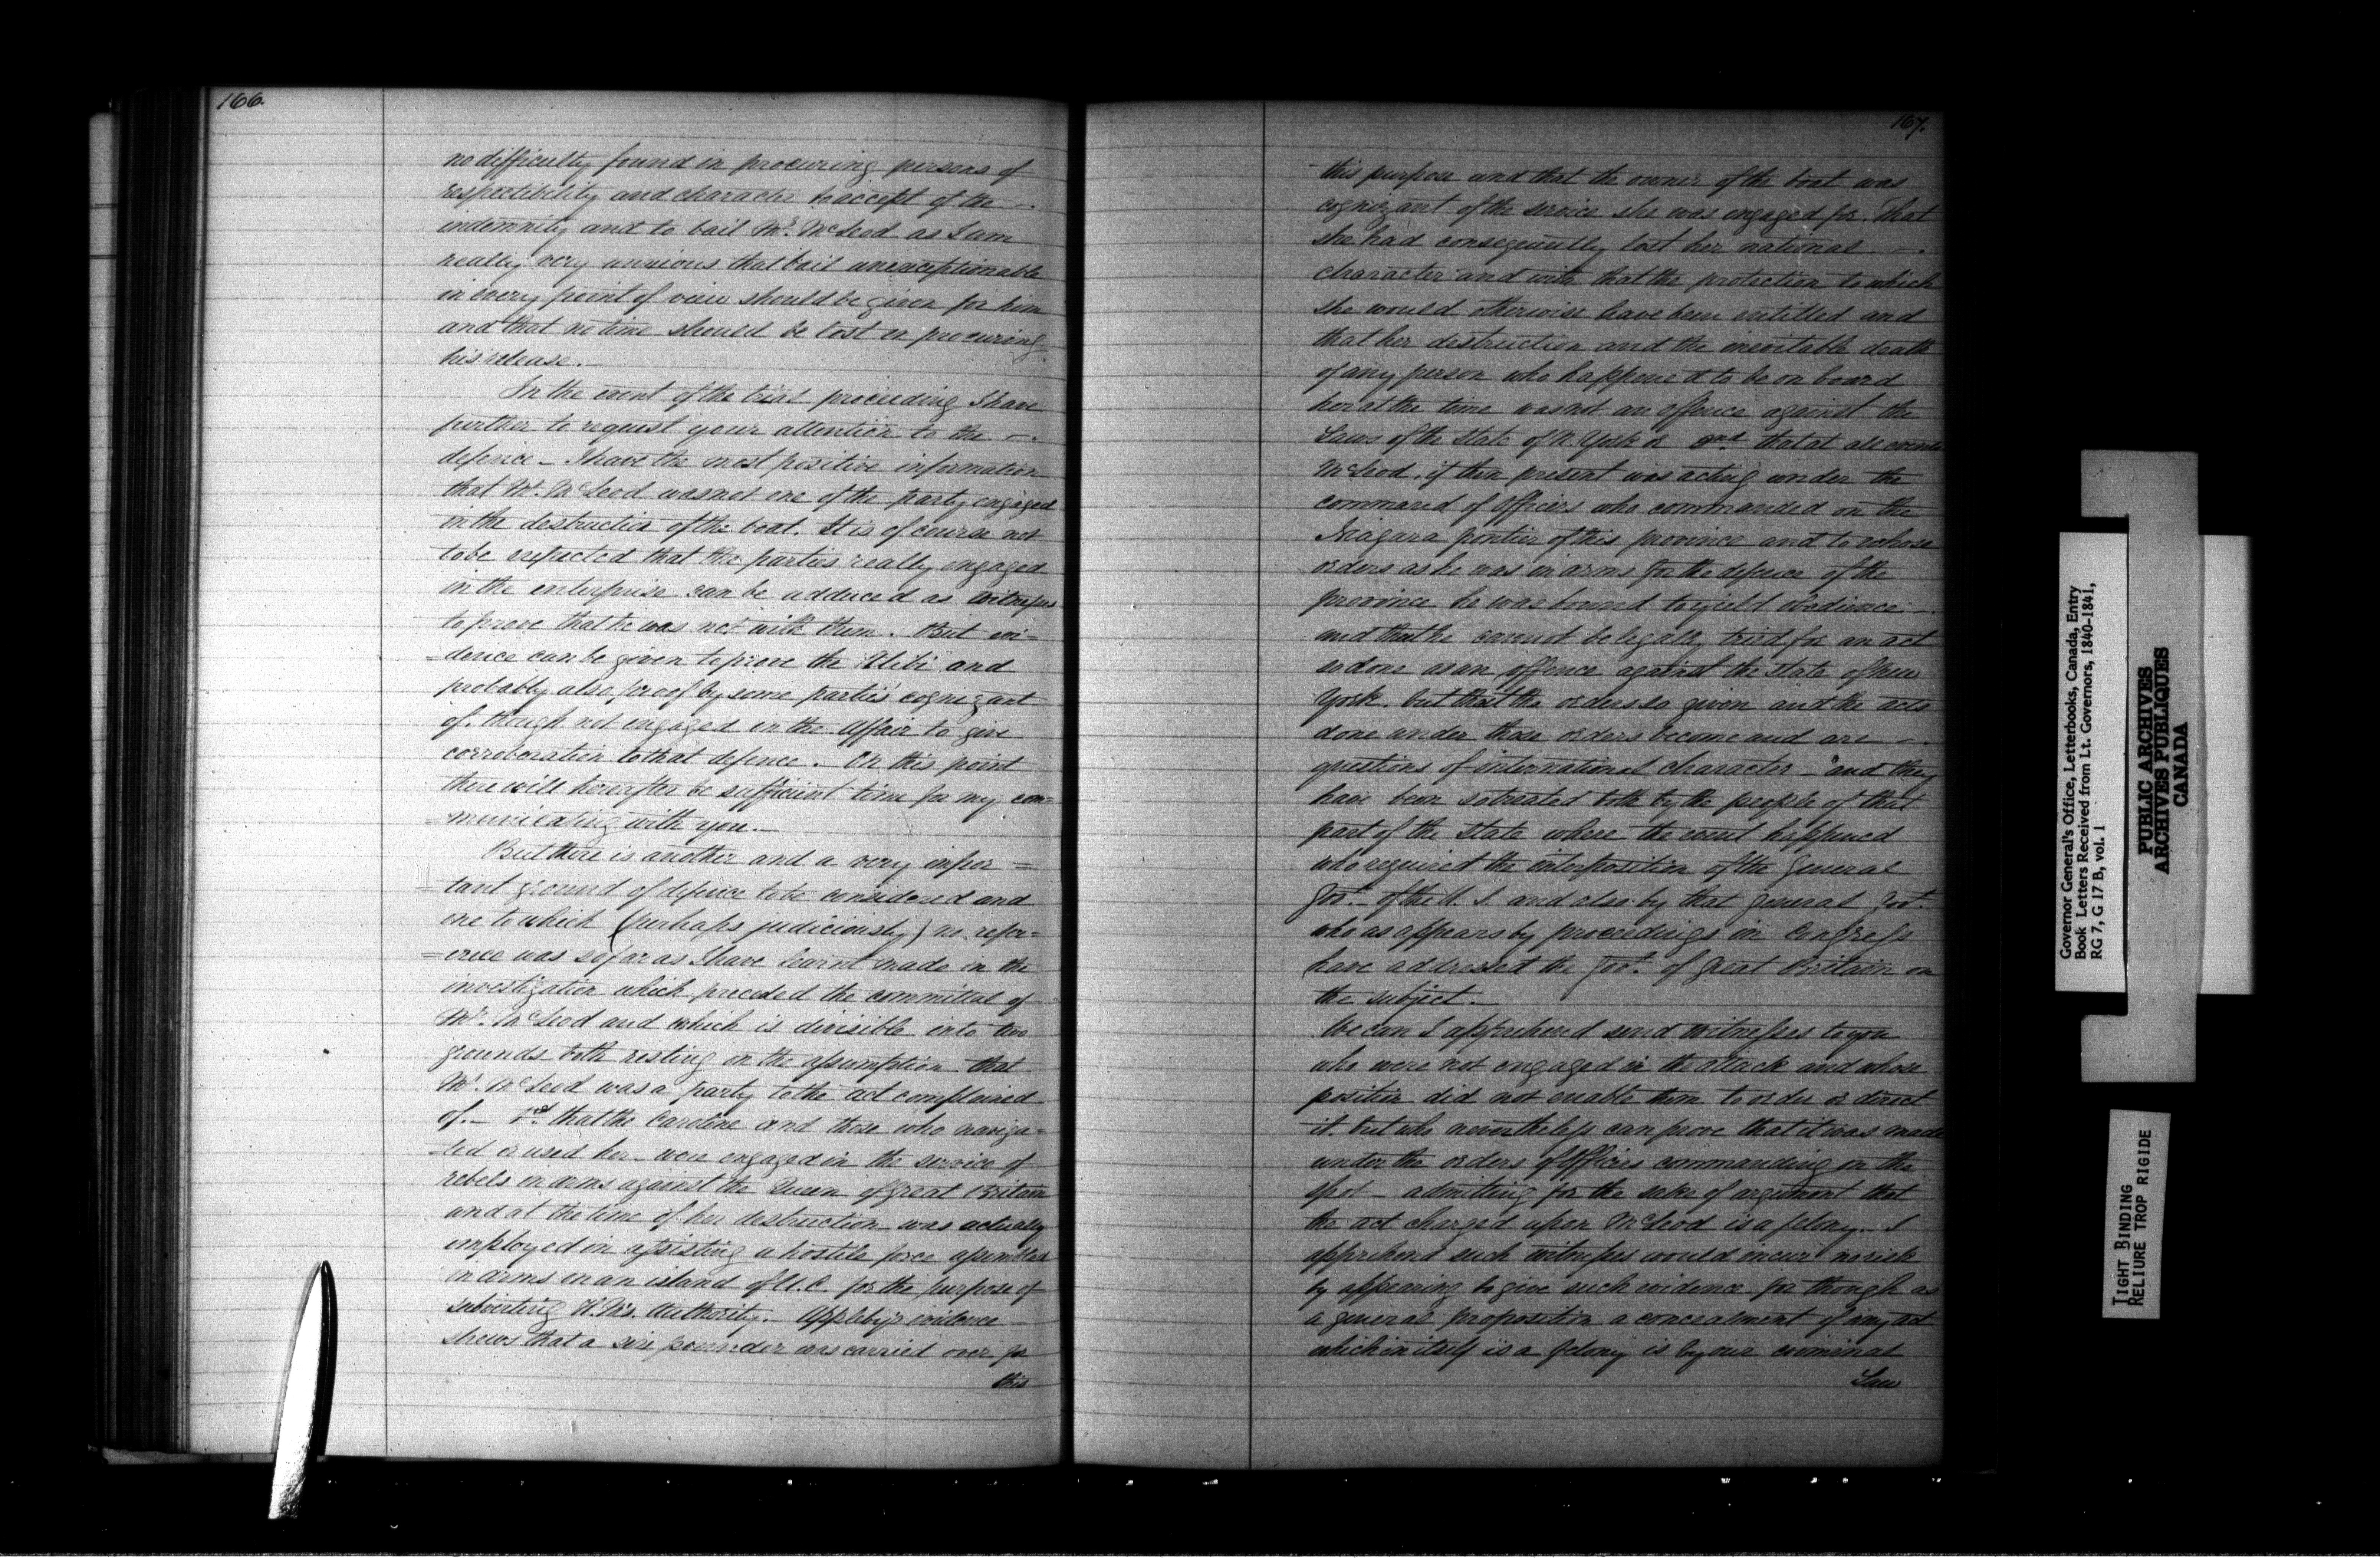 166.
no difficulty found in procuring persons of
respectibility and character to accept of the -.
indemnity and to bail Mr. McLeod as I am
really very anxious that bail unexceptionable
in every point of view should be given for him
and that no time should be lost in procuring
his release. -
In the event of the trial proceeding I have
further to request your attention to the -.
defence - I have the most positive information
that Mr. McLeod was not one of the party engaged
in the destruction of the boat. It is of course not
to be expected that the parties really engaged
in the enterprise can be adduced as witnesses
to prove that he was not with them. But evi=
=dence can be given to prove the Alibi and
probably also proof by some parties cognizant
of, though not engaged in the affair to give
corroboration to that defence. On this point
there will hereafter be sufficient time for my com=
=municating with you. -
But there is another and a very impor=
=tant ground of defence to be considered and
one to which (perhaps judiciously) no refer=
=ence was so far as I have learnt made in the
investigation which preceded the committal of
Mr. McLeod and which is divisible into two
grounds both resting on the assumption that
Mr. McLeod was a party to the act complained
of. - 1st. that the Caroline and those who naviga=
=ted or used her - were engaged in the service of
rebels in arms against the Queen of Great Britain
and at the time of her destruction was actually
employed in assisting a hostile force assembled
in arms on an island of U.C. for the purpose of
subverting H.M's. Authority. - Appleby's evidence
shews that a six pounder was carried over for
this
167.
this purpose and that the owner of the boat was
cognizant of the service she was engaged for. That
she had consequently lost her national -.
character and with that the protection to which
she would otherwise have been entitled and
that her destruction and the inevitable death
of any person who happened to be on board
her at the time was not an offence against the
Laws of the State of N. York or 2nd. that at all events
McLeod, if then present was acting under the
command of Officers who commanded on the
Niagara frontier of this province and to whose
orders as he was in arms for the defence of the
province he was bound to yield obedience -
and that he cannot be legally tried for an act
so done as an offence against the State of New
York, but that the orders so given and the acts
done under those orders become and are -.
questions of international character - and they
have been so treated both by the people of that
part of the State where the event happened
who required the interposition of the General
Govt. of the U. S. and also by that general Govt.
who as appears by proceedings in Congress
have addressed the Govt. of Great Britain on
the subject. -
We can I apprehend send witnesses to you
who were not engaged in the attack and whose
position did not enable them to order or direct
it. but who nevertheless can prove that it was made
under the orders of Officers commanding on the
spot - admitting for the sake of argument that
the act charged upon McLeod is a felony. - I
apprehend such witnesses would incur no risk
by appearing to give such evidence for though as
a general proposition a concealment of any act
which in itself is a felony is by our criminal
Law
Governor General's Office, Letterbooks, Canada, Entry
Book Letters Received from Lt. Governors, 1840-1841,
RG 7, G 17 B, vol. 1
PUBLIC ARCHIVES
ARCHIVES PUBLIQUES
CANADA
TIGHT BINDING
RELIURE TROP RIGIDE